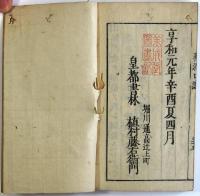 享和元年辛酉夏四月
堀川通高辻上町
皇都書林 植村藤右衛門